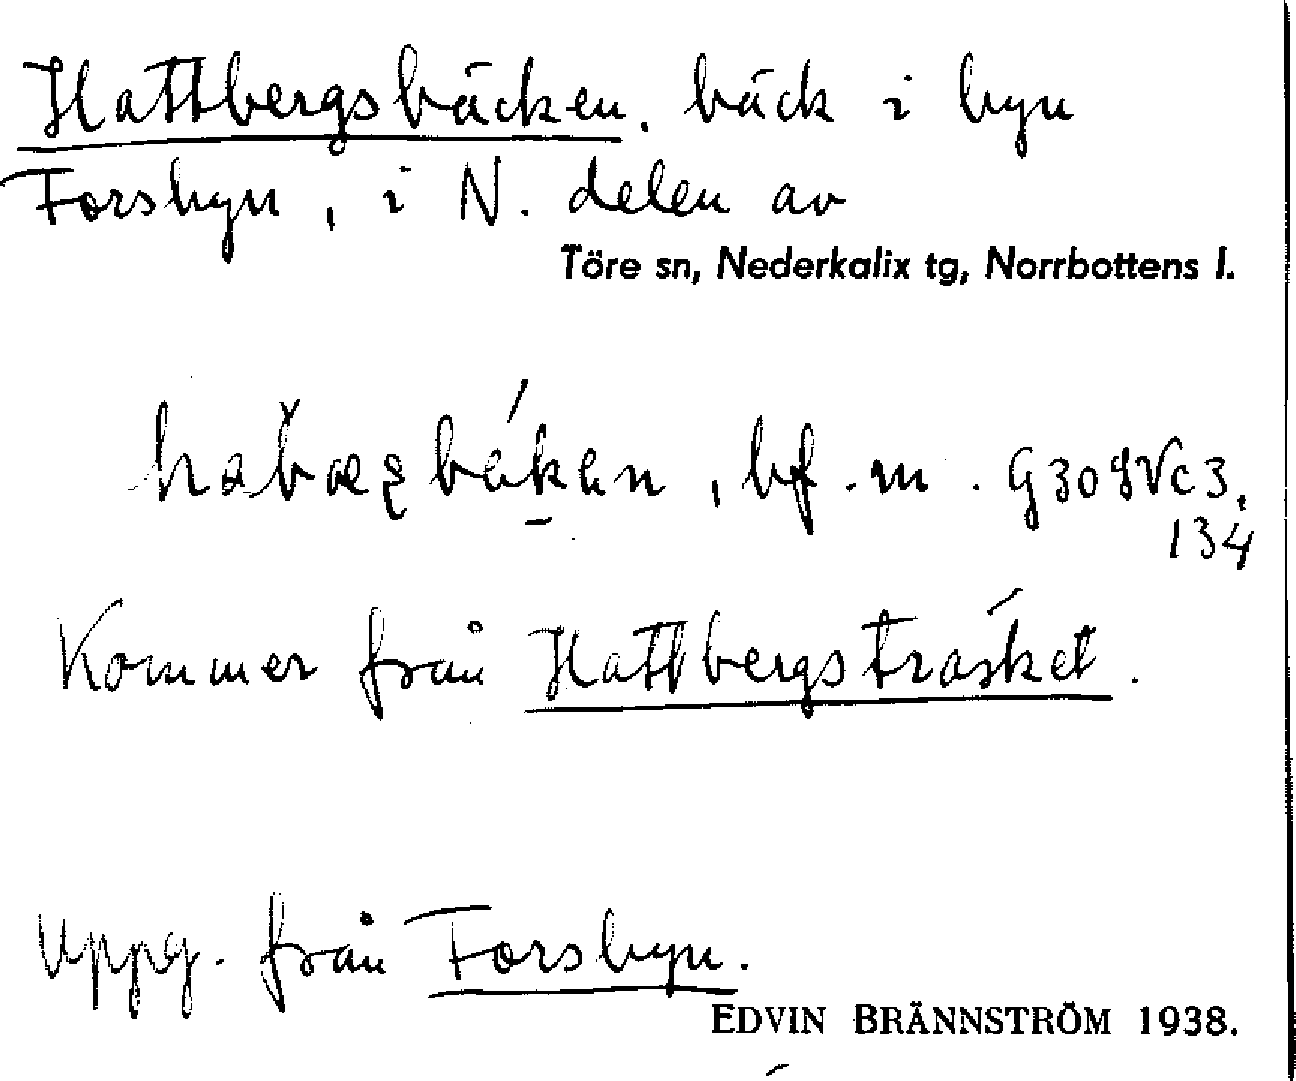 Hattbergsbäcken. bäck i byn
Forsbyn, i N. delen av
Töre sn, Nederkalix tg, Norrbottens l.
, bf. m.
134
Kommer från Hattbergsträsket.
Uppg. från Forsbyn.
EDVIN BRÄNNSTRÖM 1938.